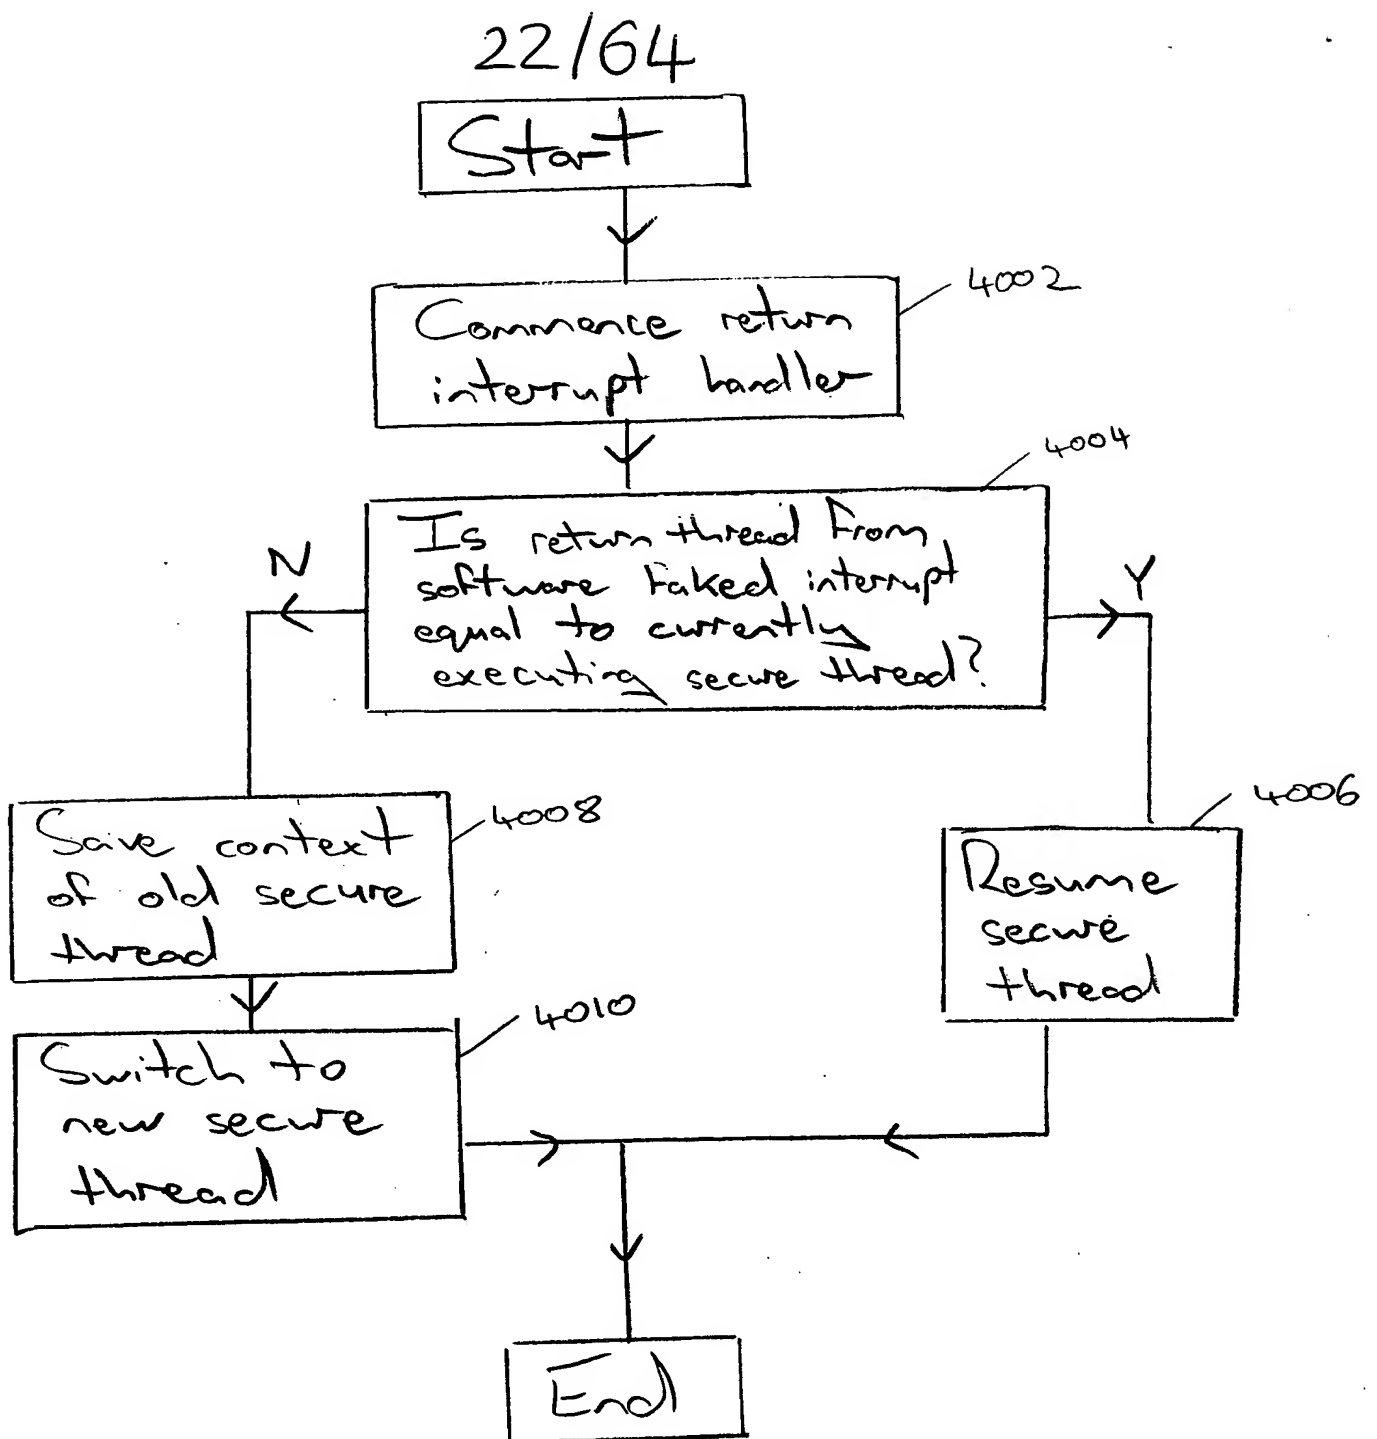 22/64
Start
4002
Commence return
interrupt handler
4004
Is return thread from
software faked interrupt
equal to currently
executing secure thread?
N
Y
4008
Save context
of old secure
thread
4006
Resume
secure
thread
4010
Switch to
new secure
thread
End